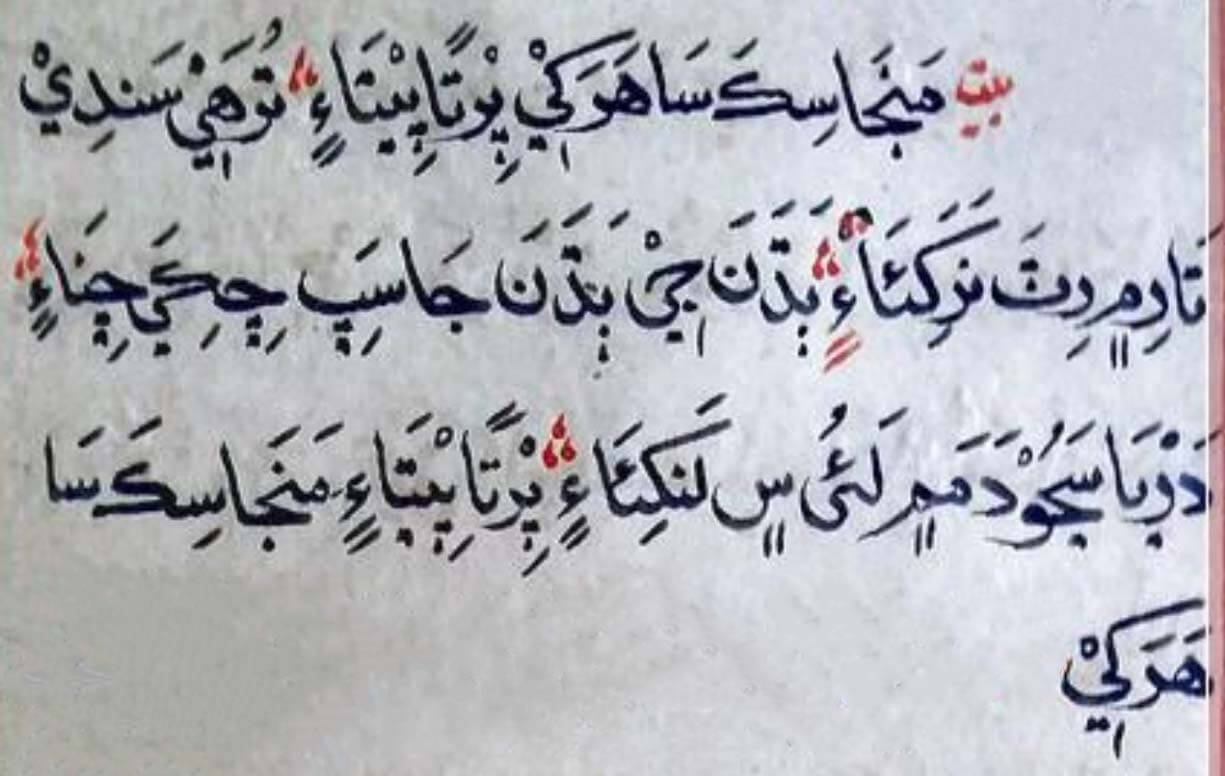 بيت مَنجَا سِڪَ سَاهَرَ کِيْ پِرْتًا پِيْتَاءٍ ؞ تُوهَيْ سَندِيْ
تَادِمٍ دِٺَ نَرَ کِئَاءٍ ؞ ٻَڎَنَ جِيْ ٻَڎَنَ جَا سِپِ چِکِي چِنَاءٍ ؞
دَرْيَا سَجُوْدَ مَمٍ لَئُي سٍ لَنکِئَاءٍ ؞ پِرْتًا پِيْتَاءٍ مَنجَا سِڪَ سَا
هَرَ کِيْ